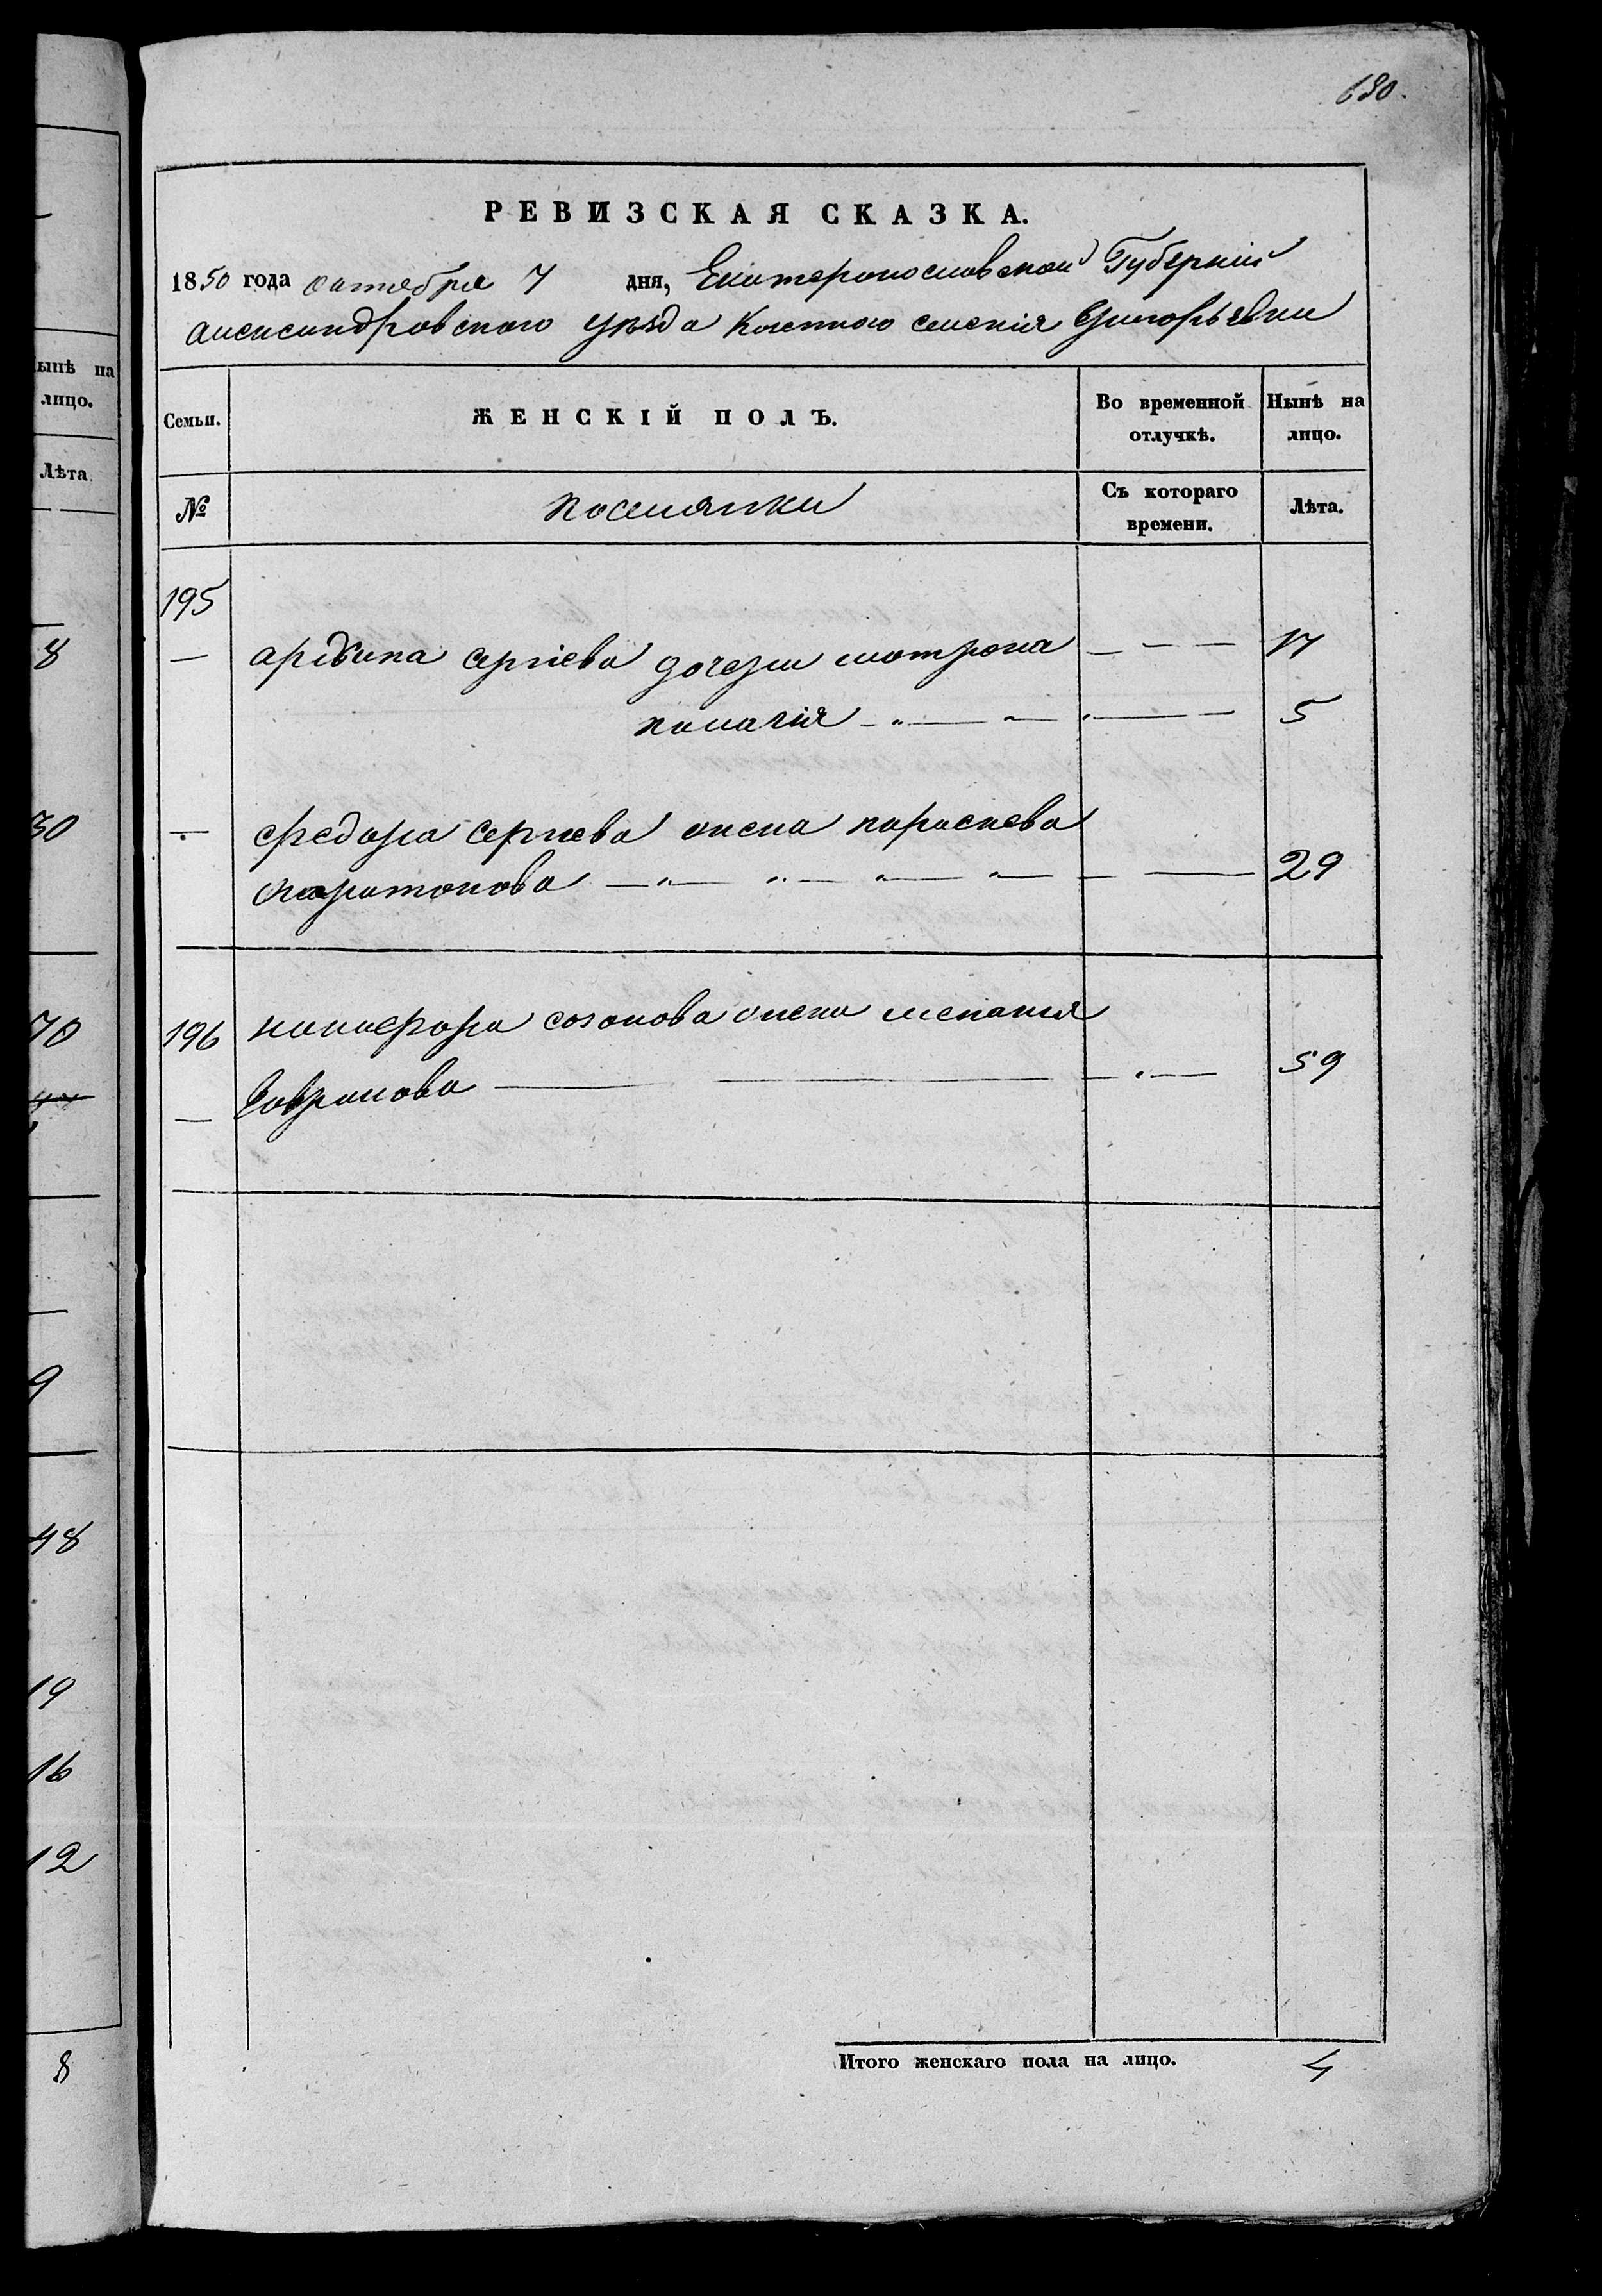 680.
РЕВИЗСКАЯ СКАЗКА.
1850 года октября 7 дня, Екатеринославской Губерніи
александровскаго уѣзда Казенного селенія Григорьевки
Семьи. ЖЕНСКІЙ ПОЛЪ. Во временной отлучкѣ. Нынѣ на лицо.
№ поселянки Съ котораго времени. Лѣта.
195
— сергіева дочери мотрона — — — 17
палагія — „ — „ — 5
— федора сергіева жена параскева
харитонова — „ — „ — „ — „ — 29
196 никифора созонова жена меланія
— Гаврилова — — — „ — 59
Итого женскаго пола на лицо. 4
ынѣ на
лицо.
Лѣта
8
30
70
9
48
19
16
12
8